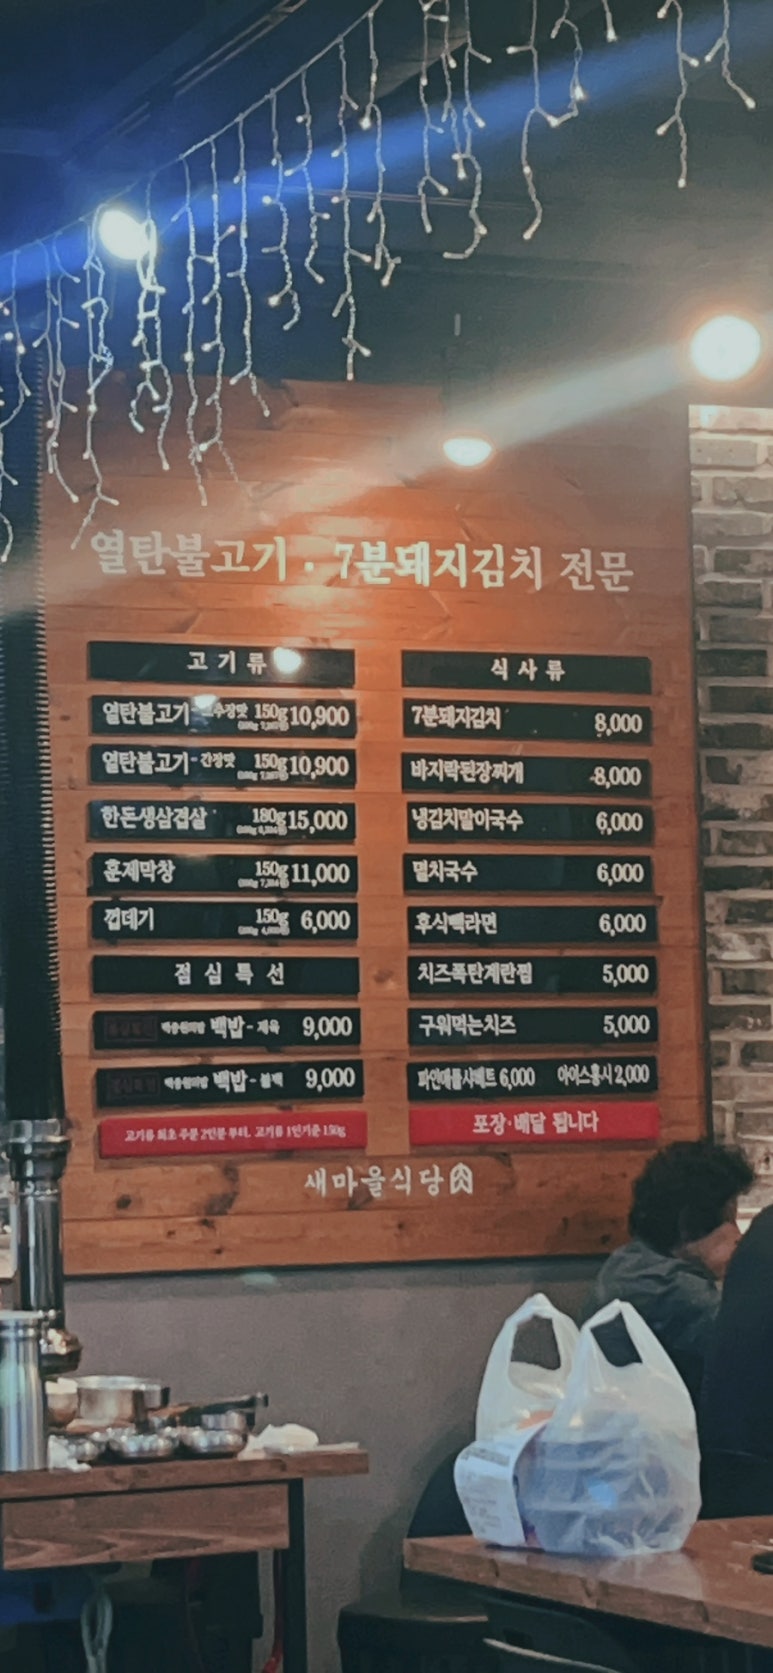 열탄불고기 · 7분돼지김치 전문
고기류
열탄불고기 - 고추장맛 150g 10,900
열탄불고기 - 간장맛 150g 10,900
한돈생삼겹살 180g 15,000
훈제막창 150g 11,000
껍데기 150g 6,000
점심특선
백종원의밥 백밥 - 제육 9,000
백종원의밥 백밥 - 불백 9,000
고기류 최초 주문 2인분 부터, 고기류 1인기준 150g
식사류
7분돼지김치 8,000
바지락된장찌개 8,000
냉김치말이국수 6,000
멸치국수 6,000
후식빽라면 6,000
치즈폭탄계란찜 5,000
구워먹는치즈 5,000
파인애플샤베트 6,000 아이스홍시 2,000
포장·배달 됩니다
새마을식당